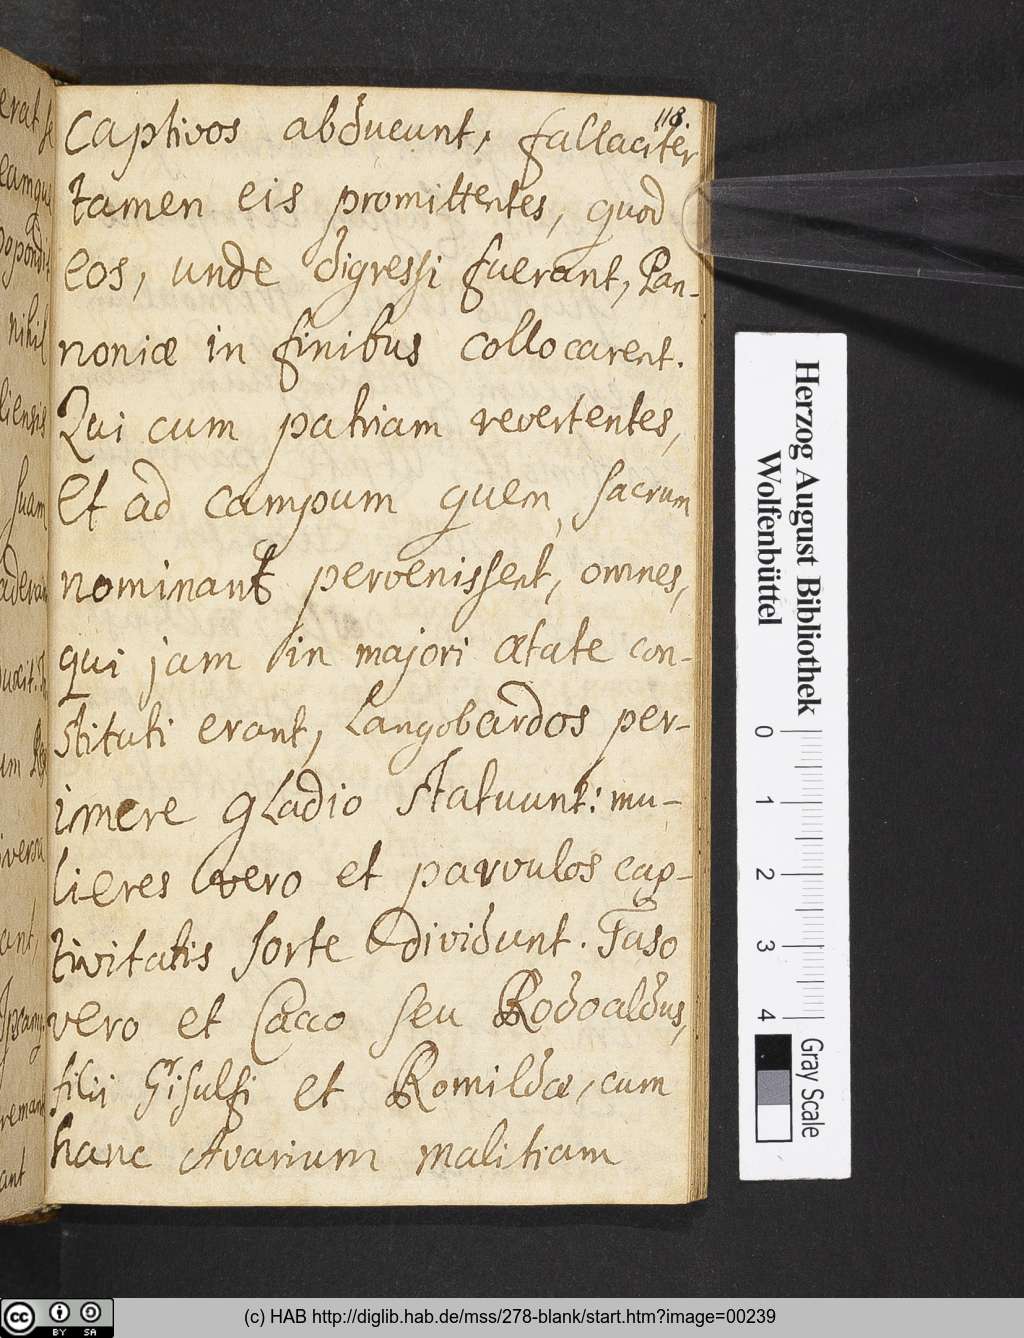 118.
Captivos abducunt, fallaciter
tamen eis promittentes, quod
eos, unde digressi fuerant, Pan-
noniæ in finibus collocarent.
Qui cum patriam revertentes,
et ad campum quem, sacrum
nominant pervenissent, omnes,
qui jam in majori ætate con-
stituti erant, Langobardos per-
imere gladio statuunt: mu-
lieres vero et parvulos cap-
tivitatis sorte dividunt. Taso
vero et Cacco seu Rodoaldus,
filii Gisulfi et Romildæ, cum
hanc Avarium malitiam
erat se
nihil
liensis
suam
um
ant,
remane
ant
Herzog August Bibliothek
Wolfenbüttel
0 1 2 3 4
Gray Scale
cc BY SA
(c) HAB http://diglib.hab.de/mss/278-blank/start.htm?image=00239